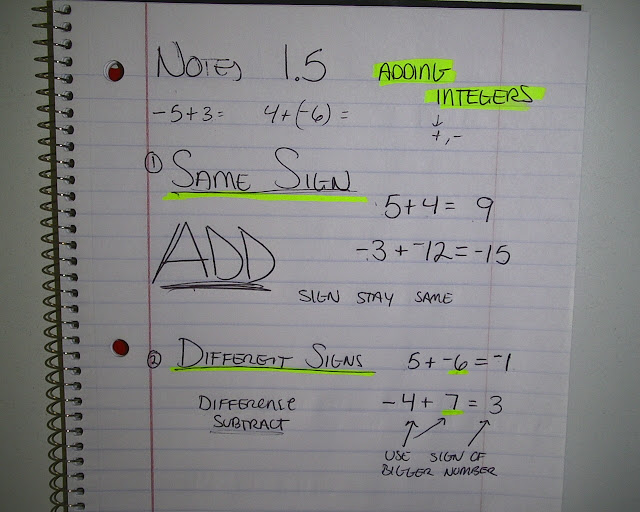 NOTES 1.5
ADDING
INTEGERS
↓
+, -
-5+3= 4+(-6) =
① SAME SIGN
5+4= 9
ADD
-3 + -12 = -15
SIGN STAY SAME
② DIFFERENT SIGNS 5 + -6 = -1
DIFFERENCE -4 + 7 = 3
SUBTRACT
USE SIGN OF
BIGGER NUMBER